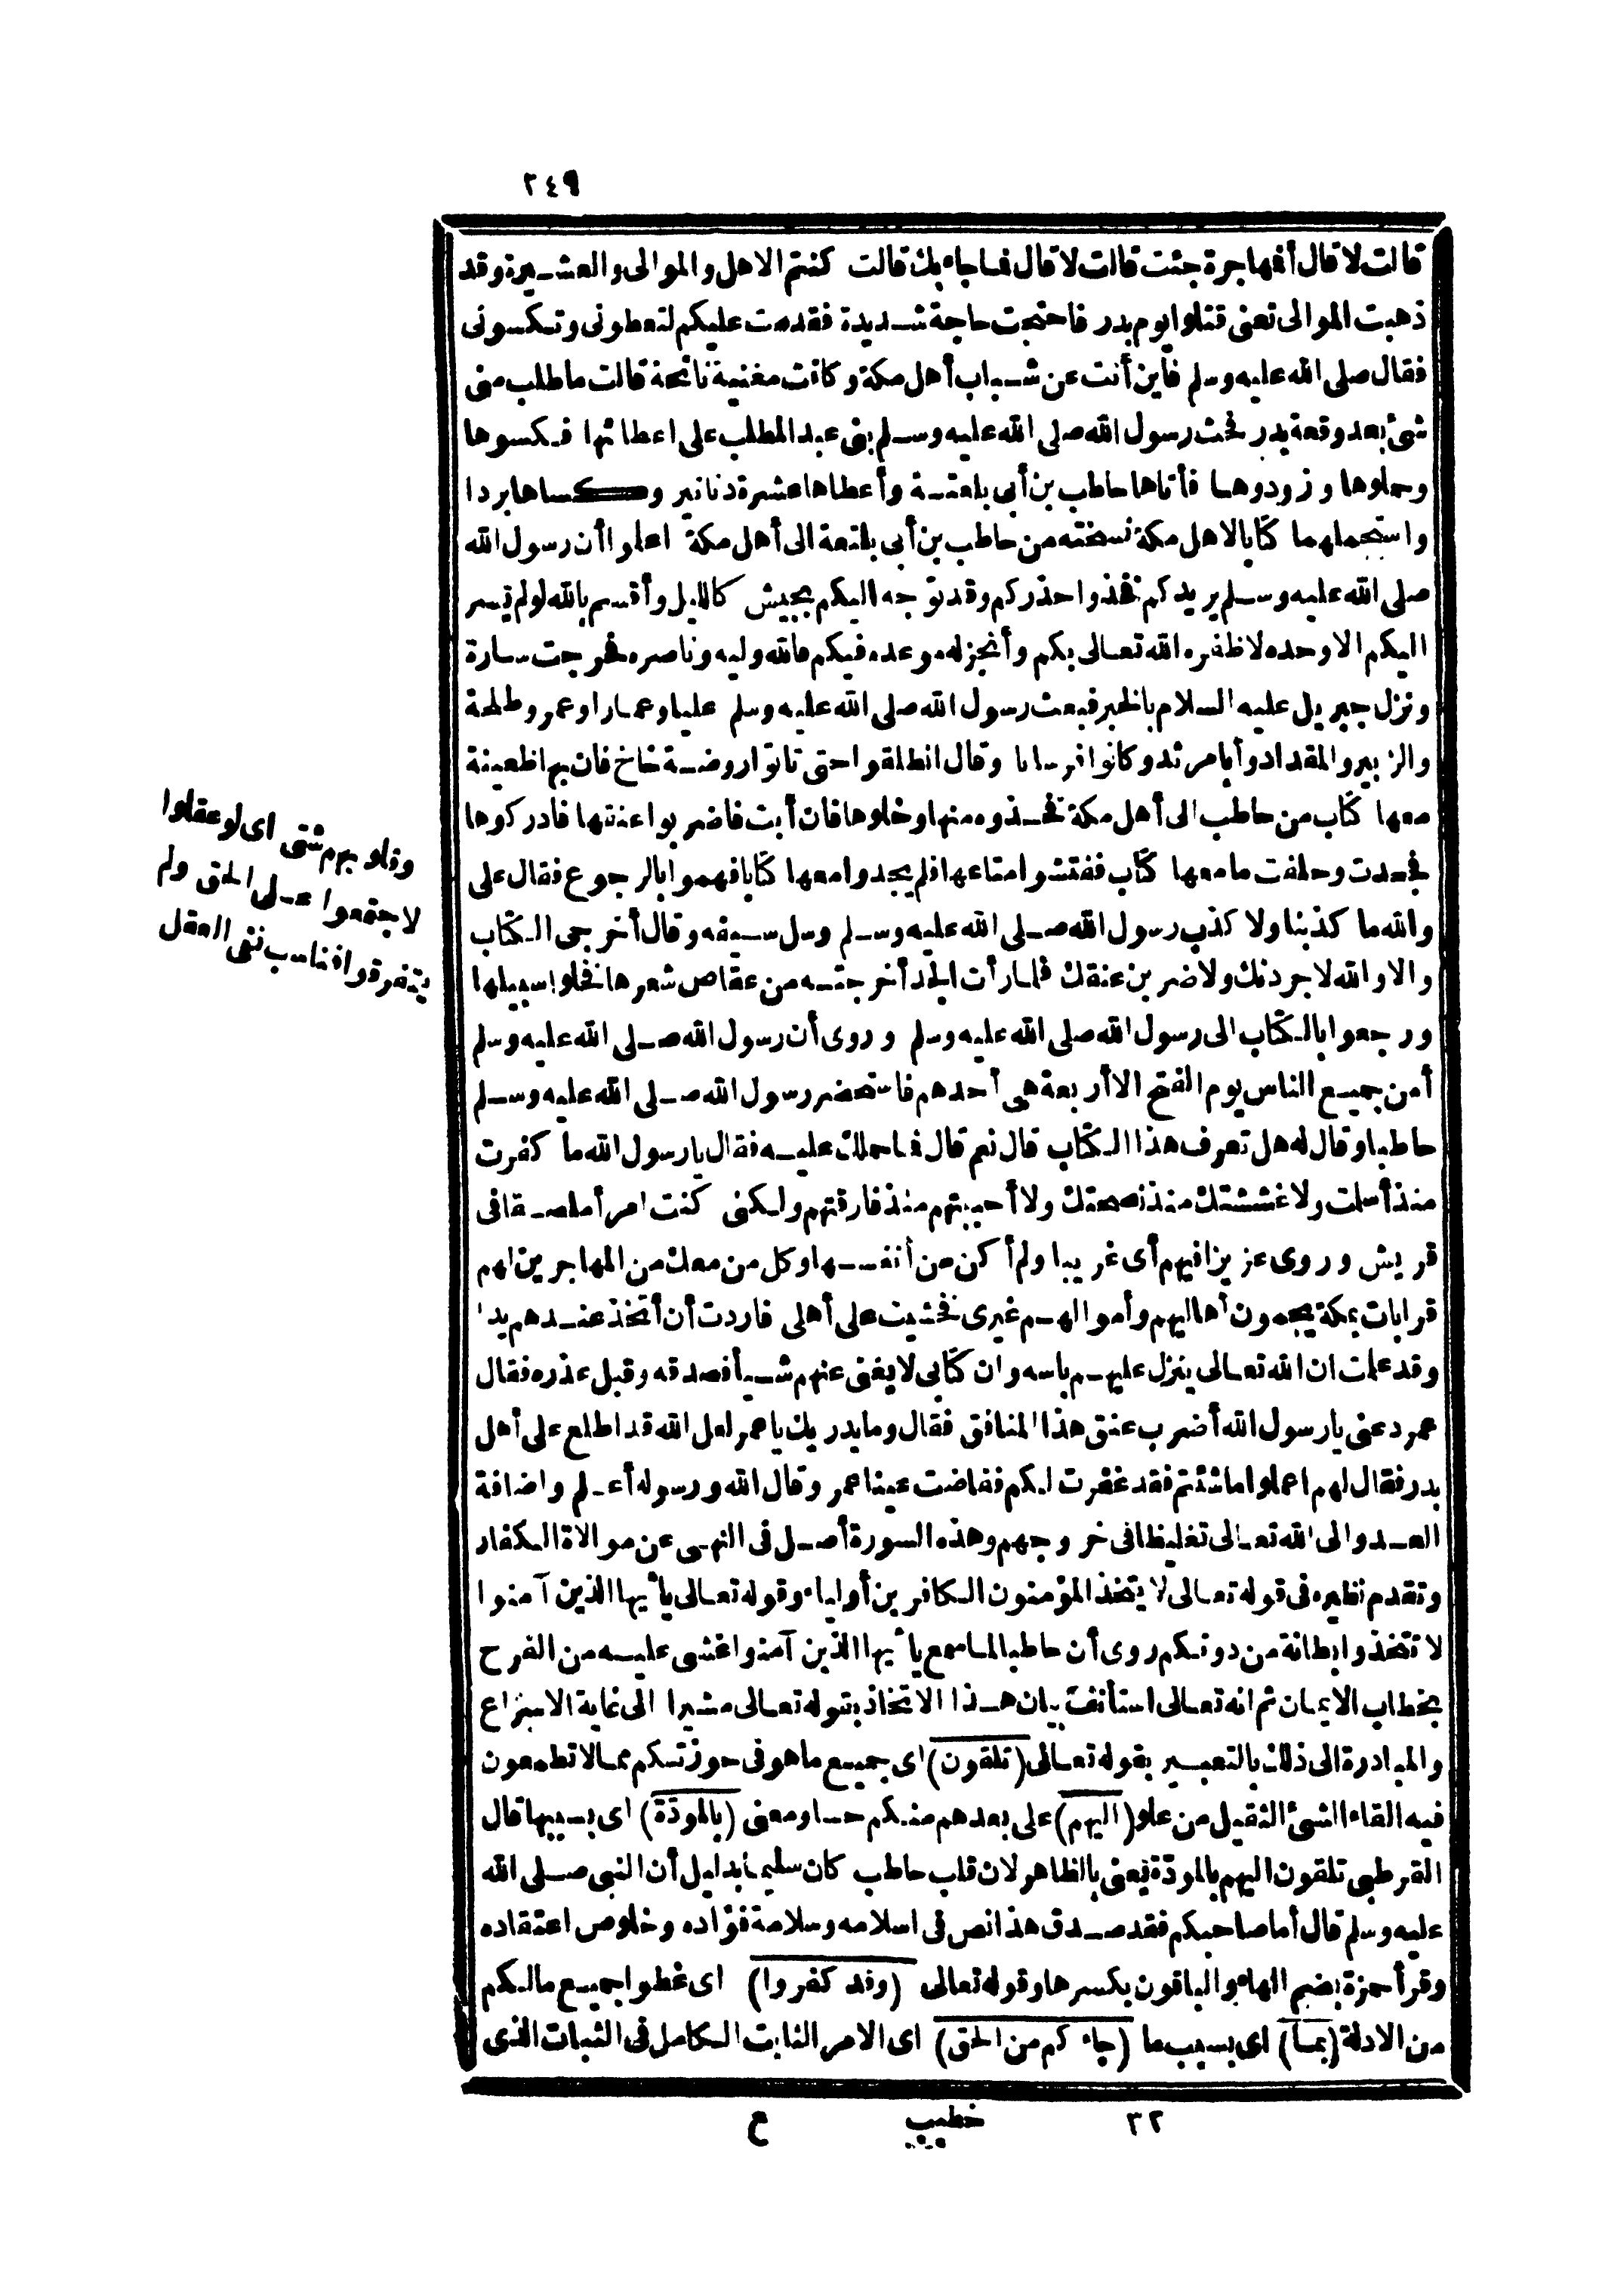 ٢٤٩
قالت لا قال أفهاجرة جئت قالت لا قال فما جاء بك قالت كنتم الاهل والموالى والعشيرة وقد
ذهبت الموالى تعنى قتلوا يوم بدر فاحتجت حاجة شديدة فقدمت عليكم لتعطونى وتكسونى
فقال صلى الله عليه وسلم فأين أنت عن شباب أهل مكة وكانت مغنية نائحة قالت ما طلب منى
شئ بعد وقعة بدر فحث رسول الله صلى الله عليه وسلم بنى عبد المطلب على اعطائها فكسوها
وحملوها وزودوها فأتاها حاطب بن أبى بلتعة وأعطاها عشرة دنانير وكساها بردا
واستحملهما كتابا لاهل مكة نسخته من حاطب بن أبى بلتعة الى أهل مكة اعلموا أن رسول الله
صلى الله عليه وسلم يريدكم فخذوا حذركم وقد توجه اليكم بجيش كالليل وأقسم بالله لو لم يسر
اليكم الا وحده لاظفره الله تعالى بكم وأنجز له موعده فيكم فالله وليه وناصره فخرجت سارة
ونزل جبريل عليه السلام بالخبر فبعث رسول الله صلى الله عليه وسلم عليا وعمارا وعمر وطلحة
والزبير والمقداد وأبا مرثد وكانوا فرسانا وقال انطلقوا حتى تاتوا روضة خاخ فان بها ظعينة
معها كتاب من حاطب الى أهل مكة فخذوه منها وخلوها فان أبت فاضربوا عنقها فادركوها
فجحدت وحلفت ما معها كتاب ففتشوا متاعها فلم يجدوا معها كتابا فهموا بالرجوع فقال على
والله ما كذبنا ولا كذب رسول الله صلى الله عليه وسلم وسل سيفه وقال أخرجى الكتاب
والا والله لاجردنك ولاضربن عنقك فلما رأت الجد أخرجته من عقاص شعرها فخلوا سبيلها
ورجعوا بالكتاب الى رسول الله صلى الله عليه وسلم وروى أن رسول الله صلى الله عليه وسلم
أمن جميع الناس يوم الفتح الا أربعة هى أحدهم فاستحضر رسول الله صلى الله عليه وسلم
حاطبا وقال له هل تعرف هذا الكتاب قال نعم قال فما حملك عليه فقال يا رسول الله ما كفرت
منذ أسلمت ولا غششتك منذ نصحتك ولا أحببتهم منذ فارقتهم ولكنى كنت امرأ ملصقا فى
قريش وروى عزيزا فيهم أى غريبا ولم أكن من أنفسها وكل من معك من المهاجرين لهم
قرابات بمكة يحمون أهاليهم وأموالهم غيرى فخشيت على أهلى فاردت أن أتخذ عندهم يدا
وقد علمت ان الله تعالى ينزل عليهم باسه وان كتابى لا يغنى عنهم شيأ فصدقه وقبل عذره فقال
عمر دعنى يا رسول الله أضرب عنق هذا المنافق فقال وما يدريك يا عمر لعل الله قد اطلع على أهل
بدر فقال لهم اعملوا ما شئتم فقد غفرت لكم ففاضت عينا عمر وقال الله ورسوله أعلم واضافة
العدو الى الله تعالى تغليظا فى خروجهم وهذه السورة أصل فى النهى عن موالاة الكفار
وتقدم نظيره فى قوله تعالى لا يتخذ المؤمنون الكافرين أولياء وقوله تعالى يأيها الذين آمنوا
لا تتخذوا بطانة من دونكم روى أن حاطبا لما سمع يأيها الذين آمنوا غشى عليه من الفرح
بخطاب الايمان ثم انه تعالى استأنف بيان هذا الاتخاذ بقوله تعالى مشيرا الى غاية الاسراع
والمبادرة الى ذلك بالتعبير بقوله تعالى (تلقون) اى جميع ما هو فى حوزتكم مما لا تطمعون
فيه القاء الشئ الثقيل من علو (اليهم) على بعدهم منكم حسا ومعنى (بالمودّة) اى بسببها قال
القرطبى تلقون اليهم بالمودّة يعنى بالظاهر لان قلب حاطب كان سليما بدليل أن النبى صلى الله
عليه وسلم قال أما صاحبكم فقد صدق هذا نص فى اسلامه وسلامة فؤاده وخلوص اعتقاده
وقرأ حمزة بضم الهاء والباقون بكسرها وقوله تعالى (وقد كفروا) اى غطوا جميع مالكم
من الادلة (بما) اى بسبب ما (جاءكم من الحق) اى الامر الثابت الكامل فى الثبات الذى
وقلوبهم شتى اى لو عقلوا
لاجتمعوا على الحق ولم
يتفرقوا فناسب نفى العقل
٣٢ خطيب ع